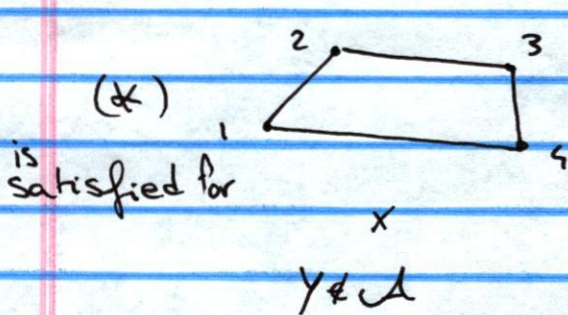 2 3
(*)
1 4
is
satisfied for
X
Y ∉ A